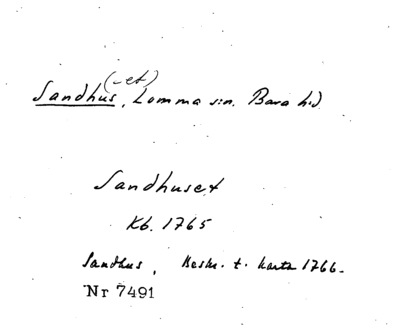 (-et)
Sandhus, Lomma sn. Bara hd
Sandhuset
Kb. 1765
Sandhus, Beskr. t. karta 1766.
Nr 7491